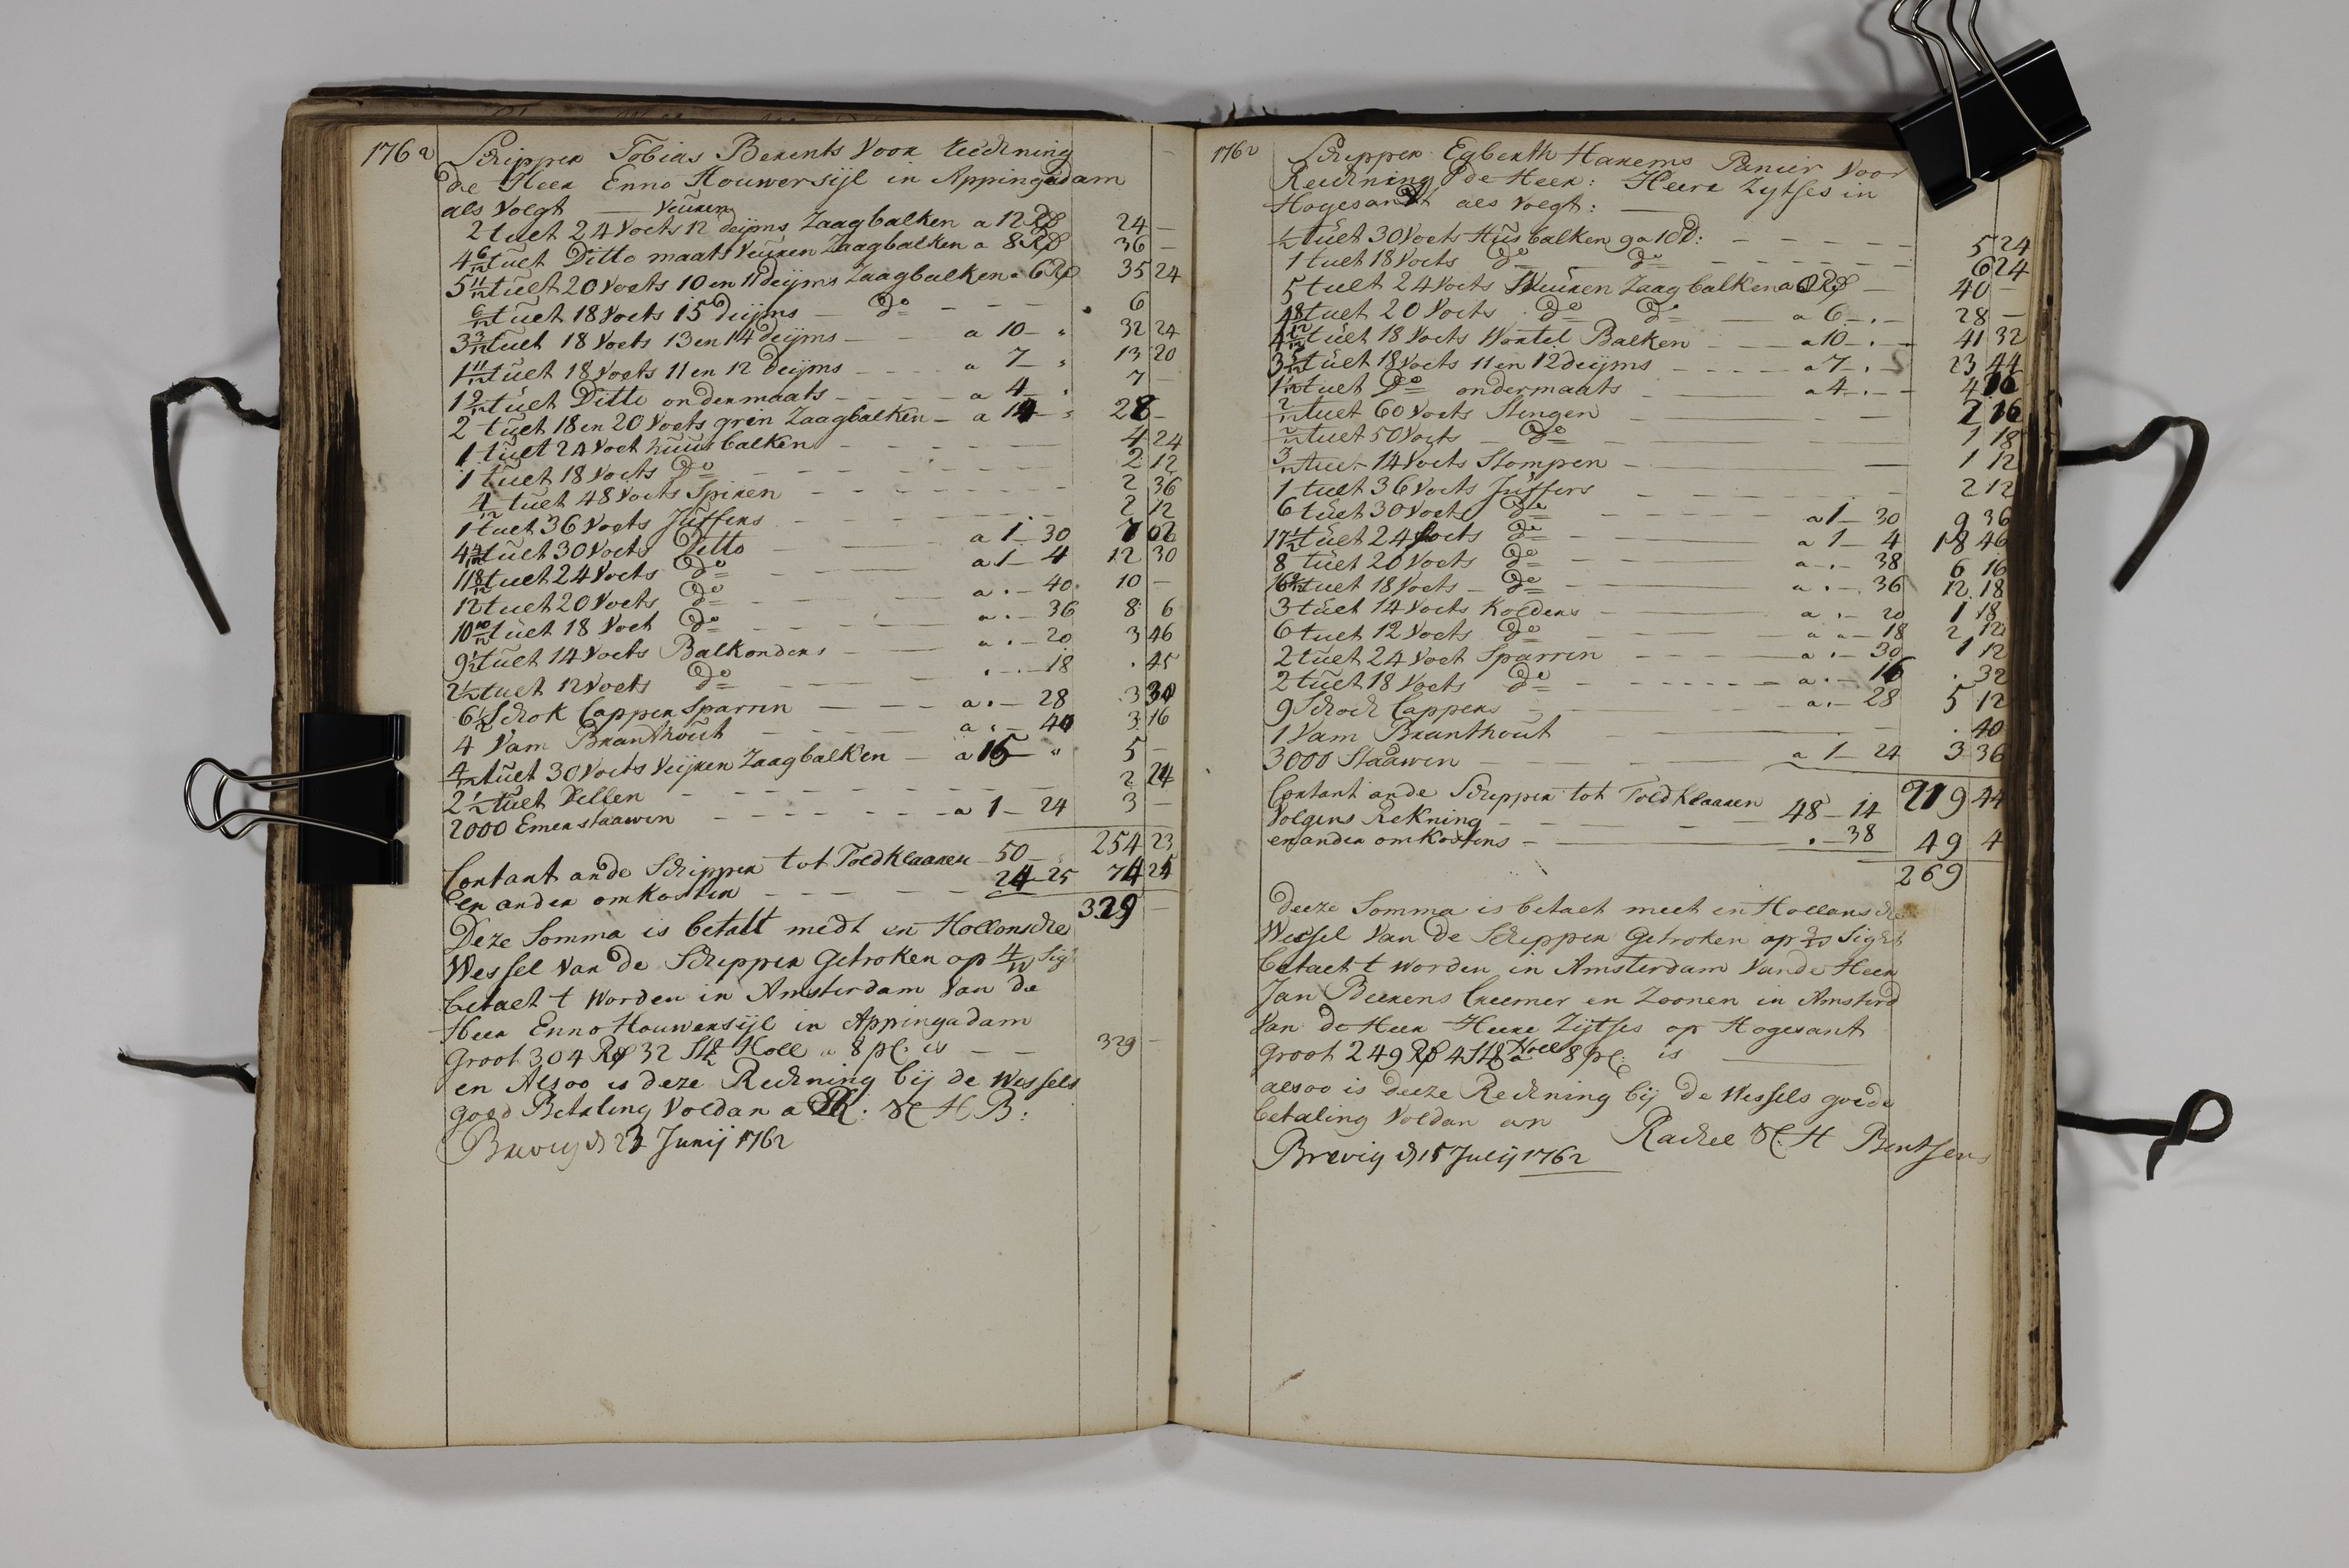 1762 Schipper Tobias Berents Voor Rechning
de Heer Enno Houwersijl in Appingadam
als Volgt — Veuren
2 tuet 24 Voets 12 deijms Zaagbalken a 12 Rd 24 —
4 6/12 tuet Ditto maats Veuren Zaagbalken a 8 Rd 36 —
5 11/12 tuet 20 Voets 10 en 11 deijms Zaagbalken a 6 Rd 35 24
6/12 tuet 18 Voets 15 deijms — do — 6
3 3/12 tuet 18 Voets 13 en 14 deijms — a 10 — " 32 24
1 11/12 tuet 18 Voets 11 en 12 deijms — a 7 — " 13 20
1 9/12 tuet Ditto ondermaats — a 4 — " 7 —
2 tuet 18 en 20 Voets grin Zaagbalken — a 14 — " 28 —
1 tuet 24 Voet huus balken — 4 24
1 tuet 18 Voets do — 2 12
4/12 tuet 48 Voets Spiren — 2 36
1 tuet 36 Voets Juffers — 2 12
4 4/12 tuet 30 Voets Ditto — a 1 — 30 7 02
11 8/12 tuet 24 Voets do — a 1 — 4 12 30
12 tuet 20 Voets do — a . — 40 10 —
10 10/12 tuet 18 Voet do — a . — 36 8 6
9 1/2 tuet 14 Voets Balkonders — a . — 20 3 46
2 1/2 tuet 12 Voets do — . — 18 . 45
6 1/2 Schok Capper Sparren — a . — 28 3 30
4 Vam Branthout — a . — 40 3 16
4/12 tuet 30 Voets Veijren Zaagbalken — a 15 — " 5 —
2 1/2 tuet Dellen — 2 24
2000 Emerstaawen — a 1 — 24 3 —
254 23
Contant ande Schipper tot Toldklaaren — 50 —
en ander omkosten — 24 — 25 74 25
329 —
Deze Somma is betalt medt en Hollonsche
Wessel Van de Schipper Getroken op
betaelt t worden in Amsterdam Van de
Heer Enno Houwersijl in Appingadam
Groot 304 Rd 32 Stb Holl a 8 pC. is — — 329 —
en Alsoo is deze Rechning bij de Wessels
good Betaling Voldan a R: St H B:
Brevig d 23 Junij 1762
1762 Schipper Egberth Harems Panier Voor
Rechning de Heer: Heere Zytses in
Hogesant als Volgt: —
1/2 tuet 30 Voets Hus balken 9 a 10 D: — 5 24
1 tuet 18 Voets do — do — 6 24
5 tuet 24 Voets Veuren Zaagbalken a 8 Rd — 40 —
4 8/12 tuet 20 Voets do do a 6 — . — 28 —
4 2/12 tuet 18 Voets Wontel Balken — a 10 — . — 41 32
3 5/12 tuet 18 Voets 11 en 12 deijms — a 7 — . — 23 44
1 1/12 tuet do ondermaats — a 4 — . — 4 16
2/12 tuet 60 Voets Stengen — 2 16
2/12 tuet 50 Voets — do — 1 18
3/12 tuet 14 Voets Stompen — 1 12
1 tuet 36 Voets Juffers — 2 12
6 tuet 30 Voets do — a 1 — 30 9 36
17 1/2 tuet 24 Voets do — a 1 — 4 18 46
8 tuet 20 Voets do — a . — 38 6 16
16 4/12 tuet 18 Voets — do — a . — 36 12 18
3 tuet 14 Voets Kolders — a . — 20 1 18
6 tuet 12 Voets do — a " — 18 2 12
2 tuet 24 Voet Sparren — a . — 30 1 12
2 tuet 18 Voets do — a . — 16 . 32
9 Schock Cappers — a . — 28 5 12
1 Vam Branthout — . 40
3000 Staawen — a 1 — 24 3 36
219 44
Contant ande Schipper tot Toldklaaren
Volgens Rekning — 48 — 14
en ander omkostens — . — 38 49 4
269
deeze Somma is betaelt meet en Hollansche
Wessel Van de Schipper Getroken op Sight
betaelt t worden in Amsterdam Vande Heer
Jan Beerens Creemer en Zoonen in Amsterd
Van de Heer Heere Zijtses op Hogesant
Groot 249 Rd 4 Stb Holl a 8 pC: is —
alsoo is deeze Rechning bij de Wessels goede
betaling Voldan an Rachel St. H Bentsens
Brevig d 15 Julij 1762